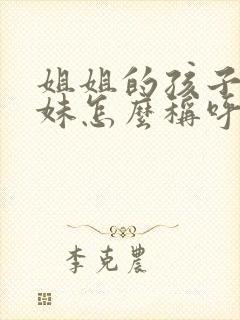 姐姐的孩子
妹怎麼稱呼
李克農